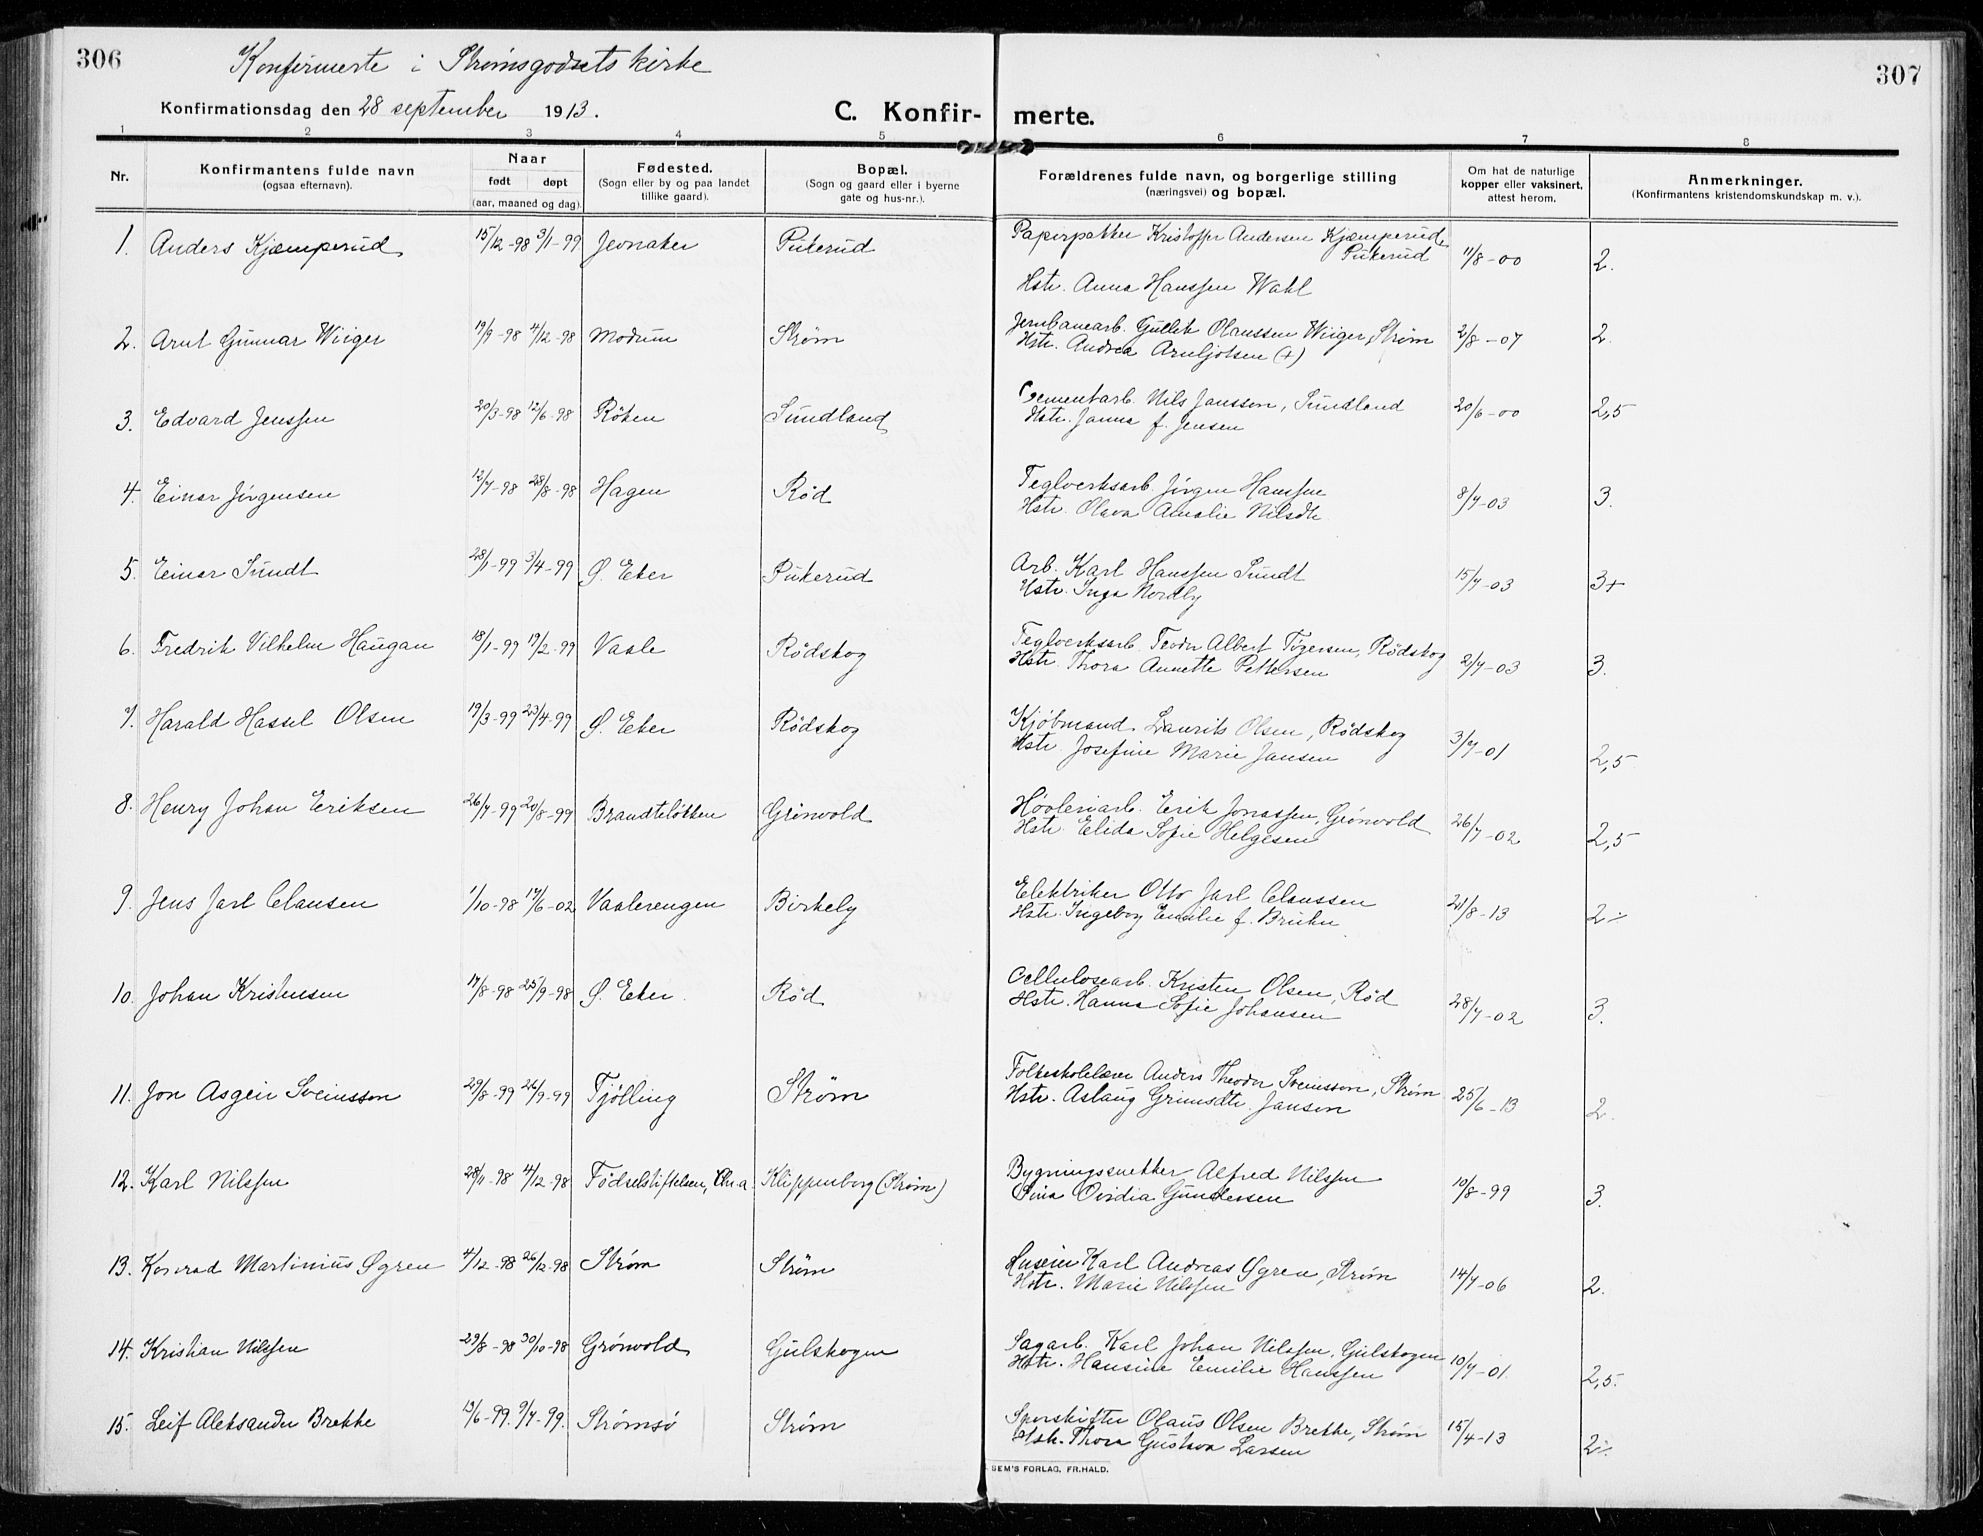 306
Konfirmerte i Strømsgodsets kirke
307
Konfirmationsdag den 28 september 1913.
C. Konfir- merte.
1 2 3 4 5 6 7 8
Nr.
Konfirmantens fulde navn
(ogsaa efternavn).
Naar
født døpt
(aar, maaned og dag).
Fødested.
(Sogn eller by og paa landet
tillike gaard).
Bopæl.
(Sogn og gaard eller i byerne
gate og hus-nr.).
Forældrenes fulde navn, og borgerlige stilling
(næringsvei) og bopæl.
Om hat de naturlige
kopper eller vaksinert,
attest herom.
Anmerkninger.
(Konfirmantens kristendomskundskap m. v.).
1. Anders Kjæmperud 15/12-98 3/1-99 Jevnaker Pukerud Papirpakker Kristoffer Andersen Kjæmperud, 11/8-00 2.
Pukerud
Hstr. Anna Hanssen Wahl
2. Arnt Gunnar Wiiger 19/9-98 4/12-98 Modum Strøm Jernbanearb. Gullik Olaussen Wiiger, Strøm 2/8-07 2.
Hstr. Andrea Arnljotsen (+)
3. Edvard Jenssen 20/3-98 12/6-98 Røken Sundland Cementarb. Nils Janssen, Sundland 20/6-00 2,5
Hstr. Janna f. Jensen
4. Einar Jörgensen 12/7-98 28/8-98 Hagen Rød Teglverksarb. Jörgen Hanssen 8/7-03 3.
Hstr. Olava Amalie Nilsdtr.
5. Einar Sundt 28/1-99 3/4-99 Ø. Eker Pukerud Arb. Karl Hanssen Sundt 15/7-03 3+
Hstr. Inga Nordby
6. Fredrik Vilhelm Haugan 18/1-99 19/2-99 Vaale Rödskog Teglverksarb. Teodor Albert Tögersen, Rödskog 2/7-03 3.
Hstr. Thora Annette Pettersen
7. Harald Hassel Olsen 19/3-99 23/4-99 Ø. Eker Rödskog Kjöbmand Laurits Olsen, Rødskog 3/7-01 2,5
Hstr. Josefine Marie Jansen
8. Henry Johan Eriksen 26/7-99 20/8-99 Brandteløkken Grönvold Høvleriarb. Erik Jonassen, Grönvold 26/7-02 2,5
Hstr. Elida Sofie Helgesen
9. Jens Jarl Clausen 1/10-98 17/6-02 Vaalerengen Birkely Elektriker Otto Jarl Claussen 21/8-13 2÷
Hstr. Ingeborg Emilie f. Bruhn
10. Johan Kristensen 17/8-98 25/9-98 Ø. Eker. Rød Cellulosearb. Kristen Olsen, Rød 28/7-02 3.
Hstr. Hanna Sofie Johansen
11. Jon Asgeir Sveinsson 29/8-99 26/9-99 Tjølling Strøm Folkeskolelærer Anders Theodor Sveinsson, Strøm 25/6-13 2.
Hstr. Aslaug Grimsdtr. Janson
12. Karl Nilssen 28/11-98 4/12-98 Födselstiftelsen, Chr.a. Klippenborg (Strøm) Bygningssnekker Alfred Nilssen 10/8-99 3.
Sina Ovidia Gundersen
13. Konrad Martinius Øgren 4/12-98 26/12-98 Strøm Strøm Huseier Karl Andreas Øgren, Strøm 14/7-06 2.
Hstr. Marie Nilssen
14. Kristian Nilssen 29/8-98 30/10-98 Grønvold Gulskogen Sagarb. Karl Johan Nilssen, Gulskogen 10/7-01. 2,5.
Hstr. Hansine Emilie Hanssen
15. Leif Aleksander Brekke 13/6-99. 9/7-99. Strømsö Strøm Sporskifter Olaus Olsen Brekke, Strøm 15/4-13 2÷
Hstr. Thora Gustava Larsen
SEM'S FORLAG, FR.HALD.